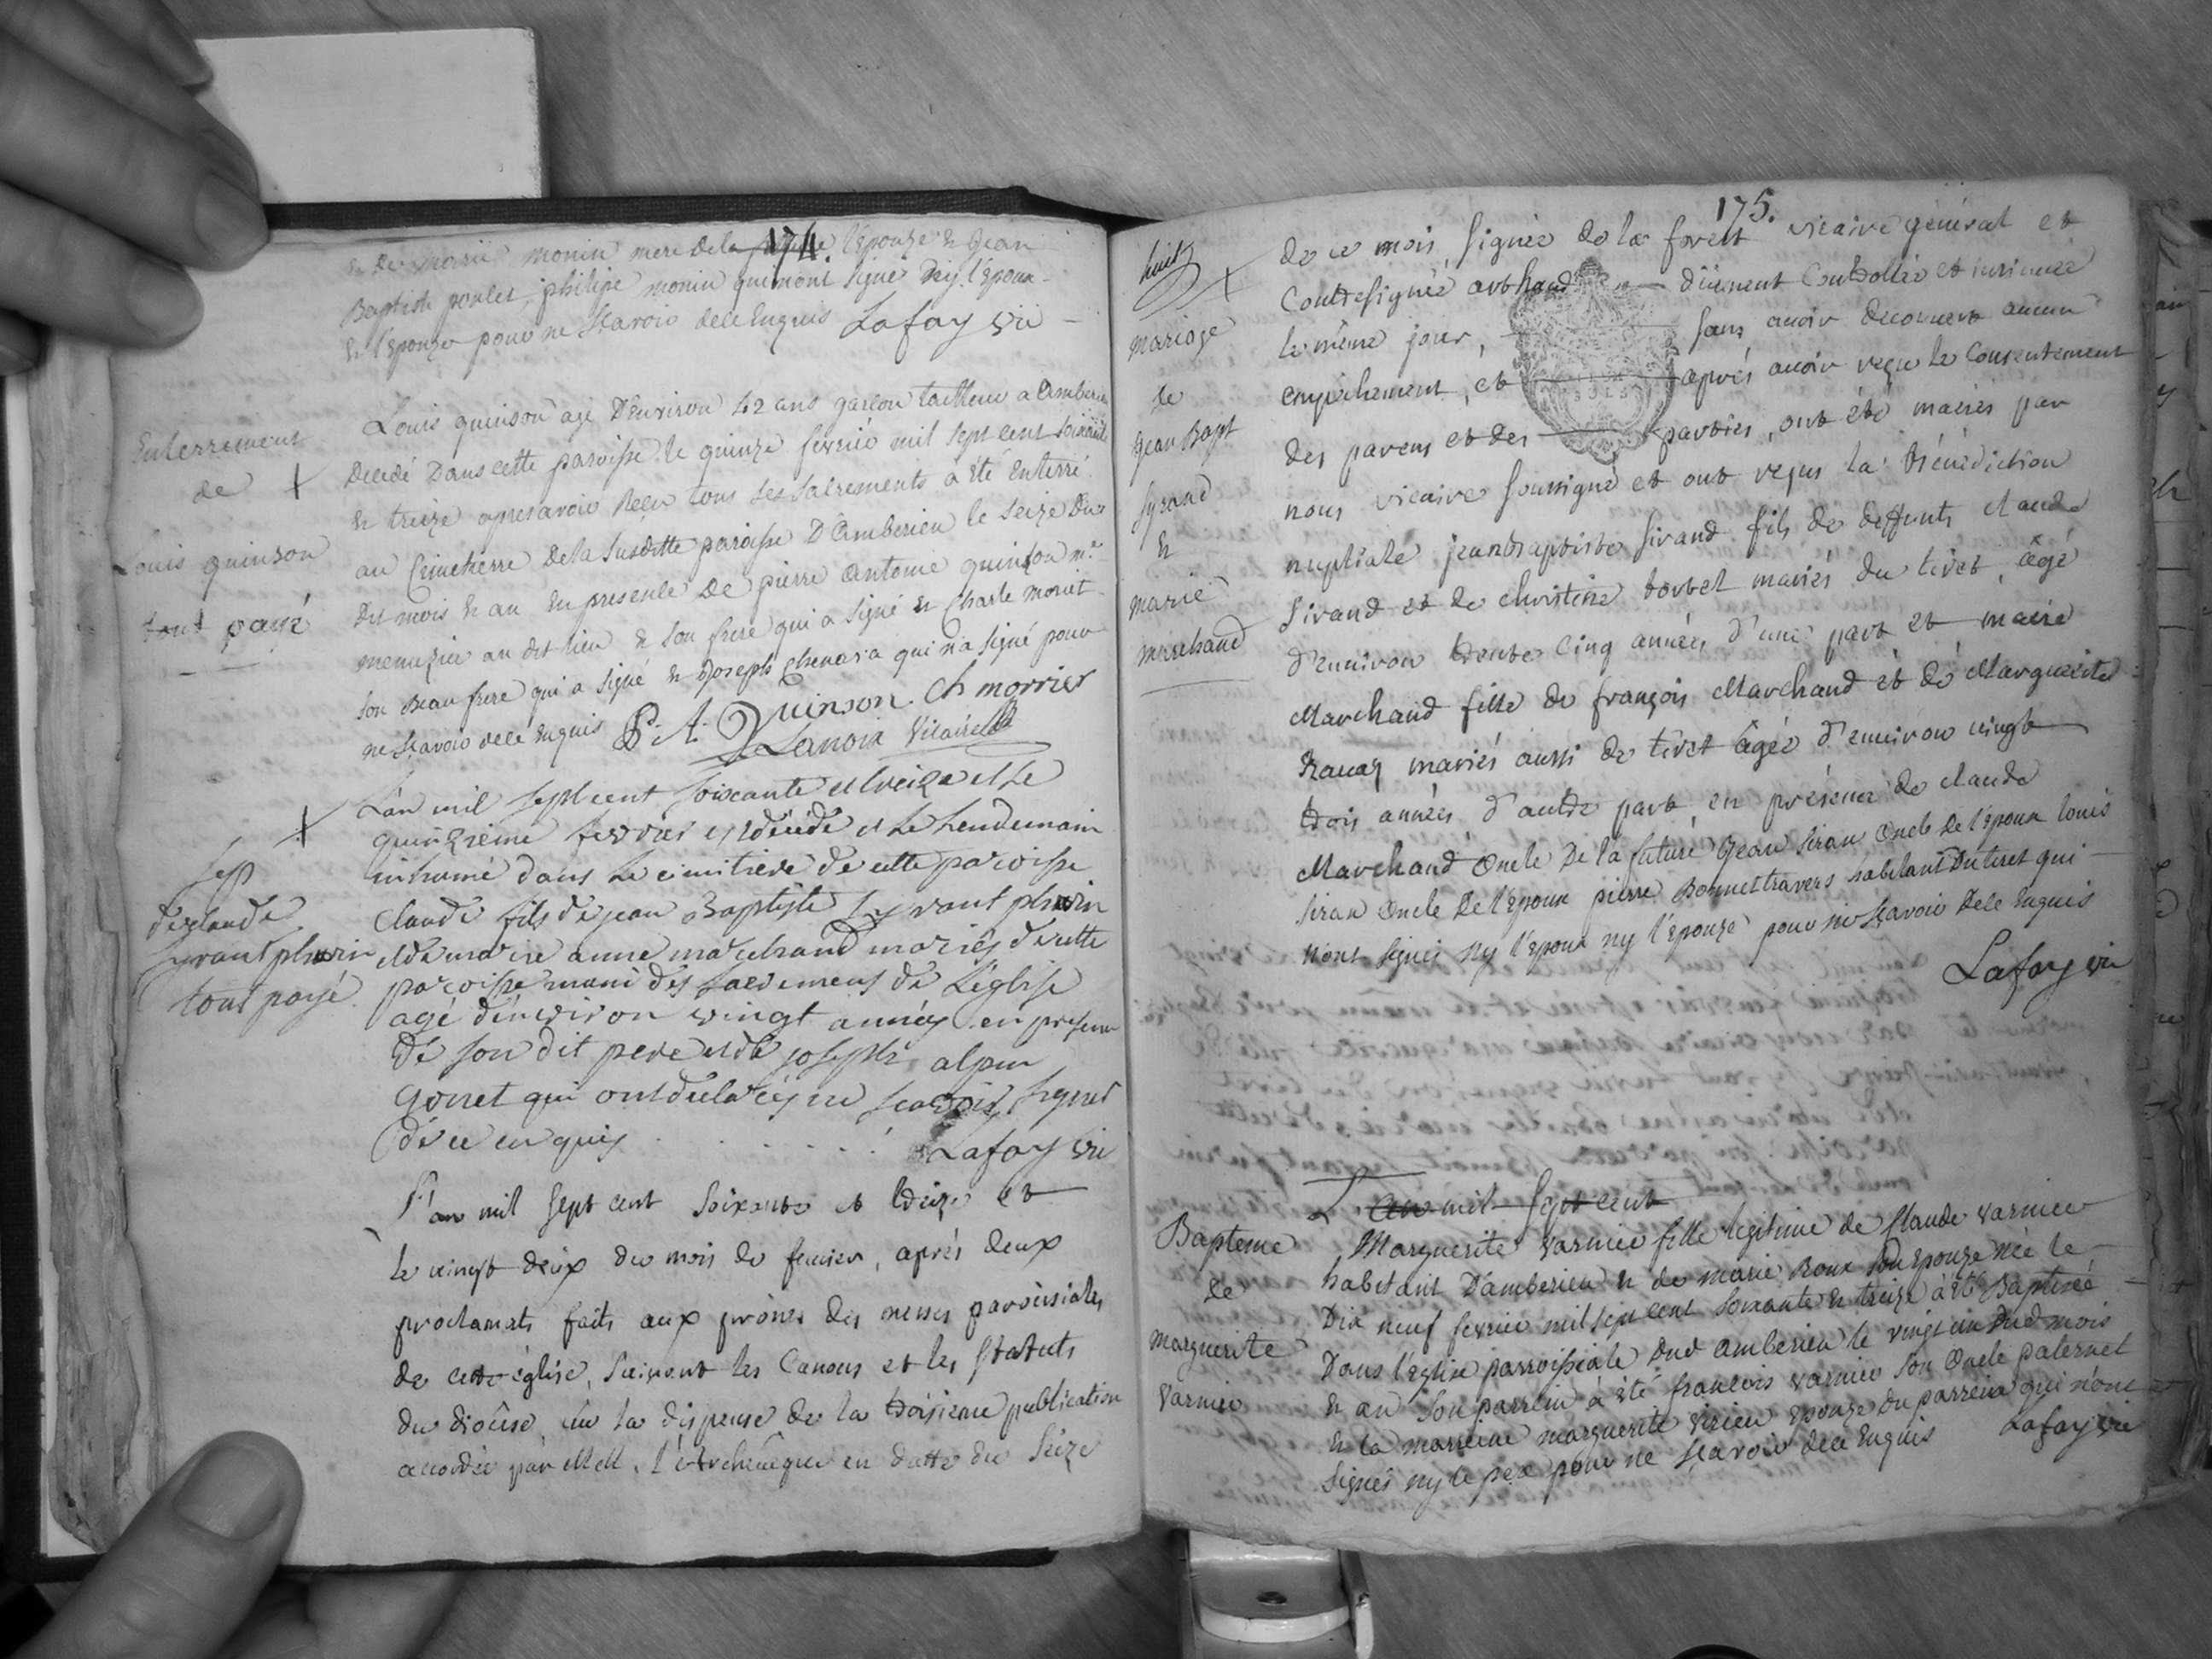 174.
& de marie monin mere de la l'epouze & jean
Baptiste poulet, philipe monin qui n'ont signé ny l'epoux
& l'epouze pour ne sçavoir de ce enquis Lafay vic
Enterrement
de
Louis quinson
tout payé
Louis quinson agé D'Environ 42 ans garcon tailleur a Amberieu
Decedé Dans cette paroisse le quinze fevrier mil sept cent soixante
& treize apres avoir Recu tous ses sacrements a été Enterré
au Cimetierre De la susditte paroisse D'Amberieu le seize Du
Dit mois & an En presence De pierre Antoine quinson me
menuzier au dit lieu & son frere qui a signé & Charle moriet
son Beau frere qui a signé & Joseph chenava qui n'a signé pour
ne sçavoir de ce enquis P. A. Quinson Ch morrier
Lanoix Vicaire
Sep
de claude
syvant pluvin
tout payé
L'an mil sept cent soixante et treize et le
quinzieme fevrier est décédé et le lendemain
inhumé dans le cimitiere de cette paroisse
claude fils de jean Baptiste syvant pluvin
et de marie anne marchand mariés de cette
paroisse muni des sacremens de L'église
agé d'environ vingt années en presence
de son dit pere et de joseph alpin
gonet qui ont declarés ne scavoir signer
de ce enquis . . . . . . . Lafay vic
L'an mil sept cent soixante et treize et
le vingt deux du mois de fevrier, aprés deux
proclamats faits aux prônes des messes paroissiales
de cette église, suivant les Canons et les statuts
du diocèse, vu la dispense de la troisieme publication
accordée par Mgr. l'Archevêque en datte du seize
175.
huit
mariage
de
Jean Bapt
syrand
&
marie
marchand
de ce mois, signée de la forest vicaire général et
Contresignée arthaud düement Controllée et insinuée
le même jour, sans avoir decouvert aucun
empêchement, et aprés avoir reçu le Consentement
des parens et des parties, ont été mariés par
nous vicaire soussigné et ont reçus la bénédiction
nuptiale jeanbaptiste sirand fils de deffunts claude
sirand et de christine tortel mariés du tiret, âgé
d'environ trente cinq années, d'une part et marie
Marchand fille de françois Marchand et de Marguerite
Ravaz mariés aussi de tiret âgée d'environ vingt
trois années d'autre part, en présence de claude
Marchand Oncle De la future Jean Siran Oncle De l'epoux louis
Siran Oncle De l'Epoux pierre Bonnet travers habitant Du tiret qui
n'ont signés ny l'epoux ny l'epouze pour ne sçavoir De ce Enquis
Lafay vic
L'an mil sept cent
Bapteme
de
marguerite
varnier
Marguerite varnier fille legitime de Claude varnier
habitant D'amberieu & de marie Roux son epouze née le
Dix neuf fevrier mil sept cent soixante & treize a été Baptizée
Dans l'eglise parroissiale Dud Amberieu le vingt un Dud mois
& an son parrein a été francois varnier son Oncle paternel
& la marreine marguerite virieu epouze du parrein qui n'ont
signés ny le pere pour ne sçavoir de ce Enquis Lafay vic